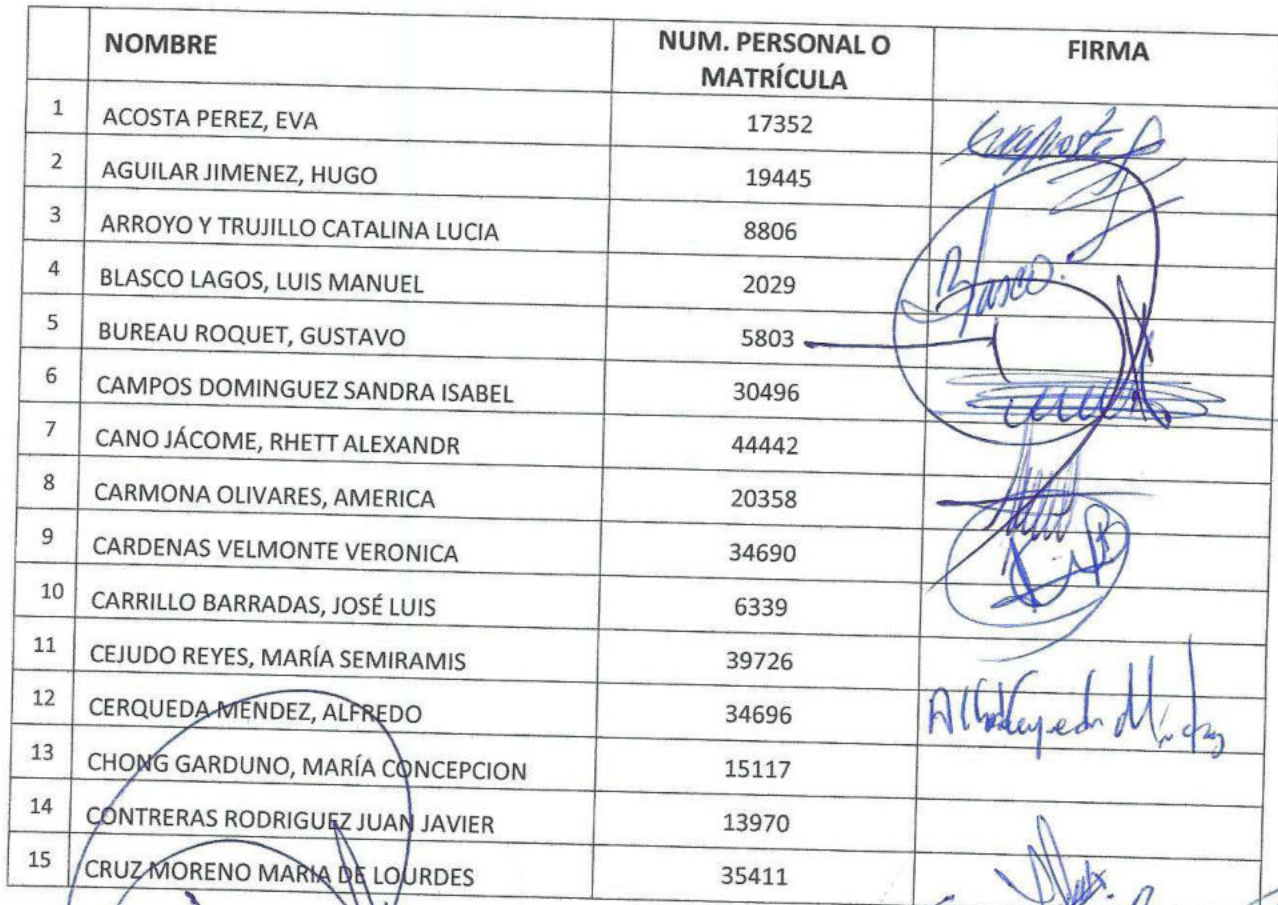 NOMBRE NUM. PERSONAL O MATRÍCULA FIRMA
1 ACOSTA PEREZ, EVA 17352
2 AGUILAR JIMENEZ, HUGO 19445
3 ARROYO Y TRUJILLO CATALINA LUCIA 8806
4 BLASCO LAGOS, LUIS MANUEL 2029 Blasco.
5 BUREAU ROQUET, GUSTAVO 5803
6 CAMPOS DOMINGUEZ SANDRA ISABEL 30496
7 CANO JÁCOME, RHETT ALEXANDR 44442
8 CARMONA OLIVARES, AMERICA 20358
9 CARDENAS VELMONTE VERONICA 34690
10 CARRILLO BARRADAS, JOSÉ LUIS 6339
11 CEJUDO REYES, MARÍA SEMIRAMIS 39726
12 CERQUEDA MENDEZ, ALFREDO 34696
13 CHONG GARDUNO, MARÍA CONCEPCION 15117
14 CONTRERAS RODRIGUEZ JUAN JAVIER 13970
15 CRUZ MORENO MARIA DE LOURDES 35411